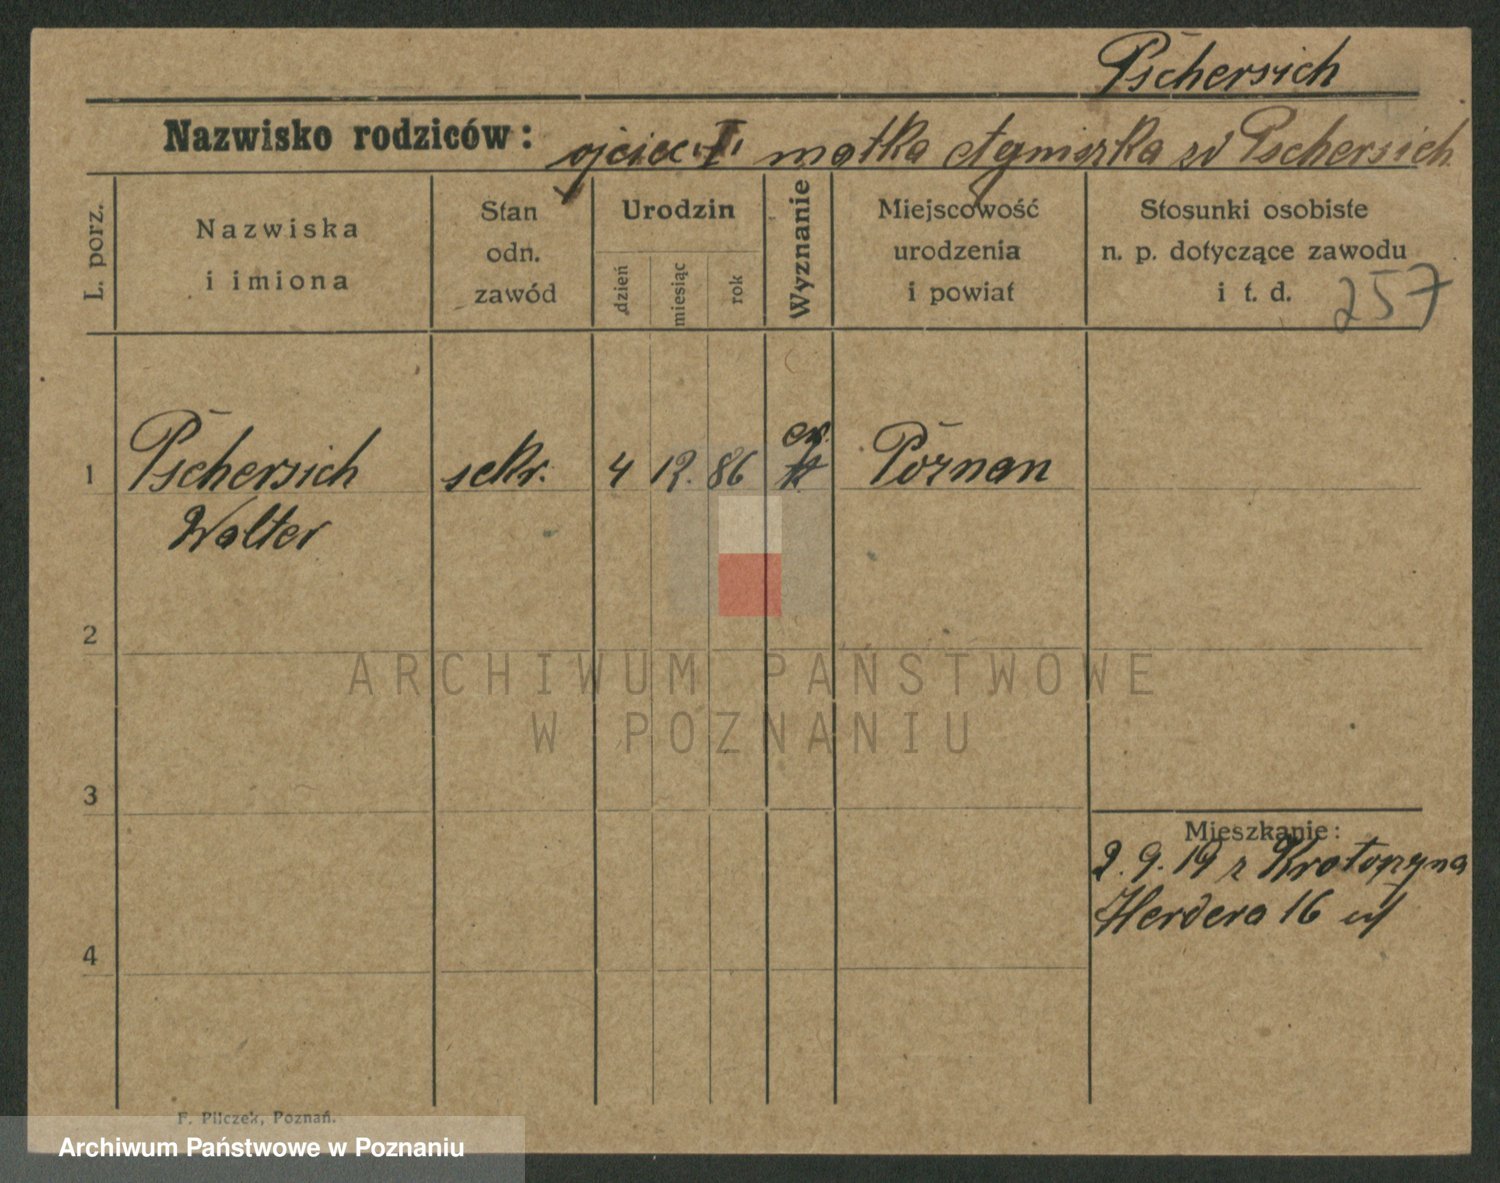 Pschersich
Nazwisko rodziców: ojciec I. matka Agniszka zd Pschersich
L. porz.
Nazwiska
i imiona
Stan
odn.
zawód
Urodzin
dzień
miesiąc
rok
Wyznanie
Miejscowość
urodzenia
i powiat
Stosunki osobiste
n. p. dotyczące zawodu
i t. d.
257
1 Pschersich sekr. 4 12. 86 ew. Poznan
Walter
2
ARCHIWUM PAŃSTWOWE
W POZNANIU
3
Mieszkanie:
2.9.19 z Krotoszyna
Herdera 16
4
F. Pilczek, Poznań.
Archiwum Państwowe w Poznaniu